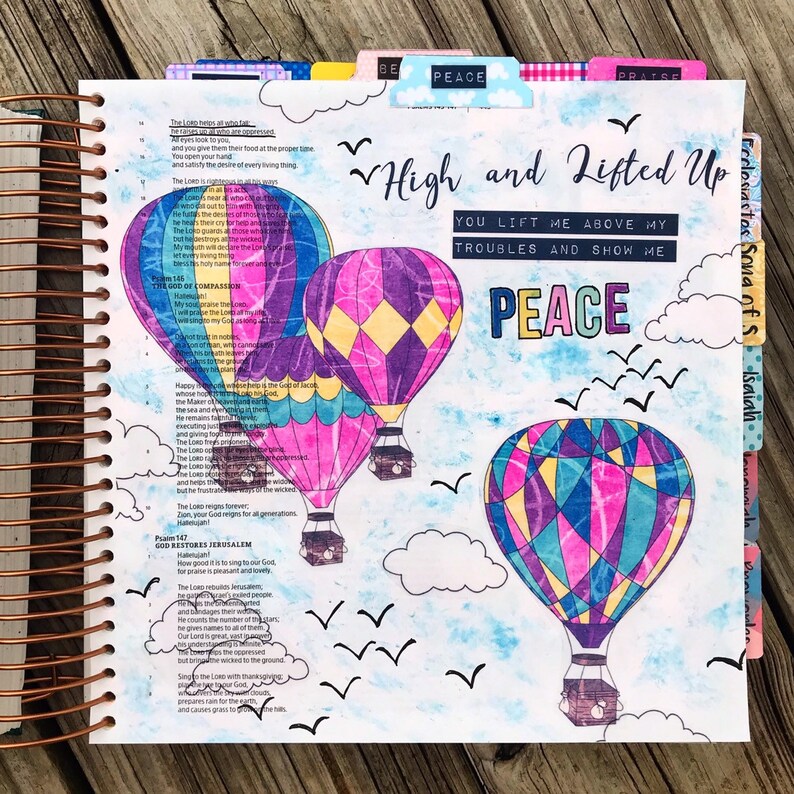 BE
PEACE
PRAISE
14 The LORD helps all who fall;
he raises up all who are oppressed.
All eyes look to you,
and you give them their food at the proper time.
You open your hand
and satisfy the desire of every living thing.
The LORD is righteous in all his ways
and faithful in all his acts.
The LORD is near all who call out to him,
all who call out to him with integrity.
He fulfills the desires of those who fear him;
he hears their cry for help and saves them.
The LORD guards all those who love him,
but he destroys all the wicked.
My mouth will declare the LORD's praise;
let every living thing
bless his holy name forever and ever.
Psalm 146
THE GOD OF COMPASSION
Hallelujah!
My soul, praise the LORD.
I will praise the LORD all my life;
I will sing to my God as long as
Do not trust in nobles,
in a son of man, who cannot save.
When his breath leaves him,
he returns to the ground;
on that day his plans die.
5 Happy is the one whose help is the God of Jacob,
whose hope is in the LORD his God,
the Maker of heaven and earth,
the sea and everything in them.
He remains faithful forever,
executing justice for the exploited
and giving food to the hungry.
The LORD frees prisoners.
8 The LORD opens the eyes of the blind.
The LORD raises up those who are oppressed.
The LORD loves the righteous.
9 The LORD protects resident aliens
and helps the fatherless and the widow,
but he frustrates the ways of the wicked.
10 The LORD reigns forever;
Zion, your God reigns for all generations.
Hallelujah!
Psalm 147
GOD RESTORES JERUSALEM
1 Hallelujah!
How good it is to sing to our God,
for praise is pleasant and lovely.
The LORD rebuilds Jerusalem;
he gathers Israel's exiled people.
3 He heals the brokenhearted
and bandages their wounds.
He counts the number of the stars;
he gives names to all of them.
Our Lord is great, vast in power;
his understanding is infinite.
The LORD helps the oppressed
but brings the wicked to the ground.
7 Sing to the LORD with thanksgiving;
play the lyre to our God,
8 who covers the sky with clouds,
prepares rain for the earth,
and causes grass to grow on the hills.
High and Lifted Up
YOU LIFT ME ABOVE MY
TROUBLES AND SHOW ME
PEACE
Ecclesiastes
Song of S
Isaiah
Jeremiah